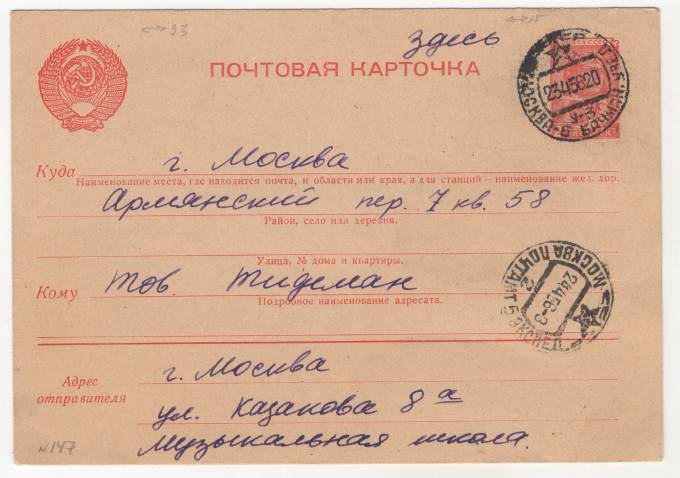 93
здесь
ПОЧТОВАЯ КАРТОЧКА
2345620
МОСКВА-5
Куда г. Москва
Наименование места, где находится почта, и области или края, а для станций — наименование жел. дор.
Армянский пер. 7 кв. 58
Район, село или деревня.
Улица, № дома и квартиры.
Кому Тов. Тидеман
Подробное наименование адресата.
МОСКВА ПОЧТАМТ
24456-3
2
5 ЭКСПЕД.
Адрес отправителя
г. Москва
ул. Казакова 8 а
Музыкальная школа.
№147